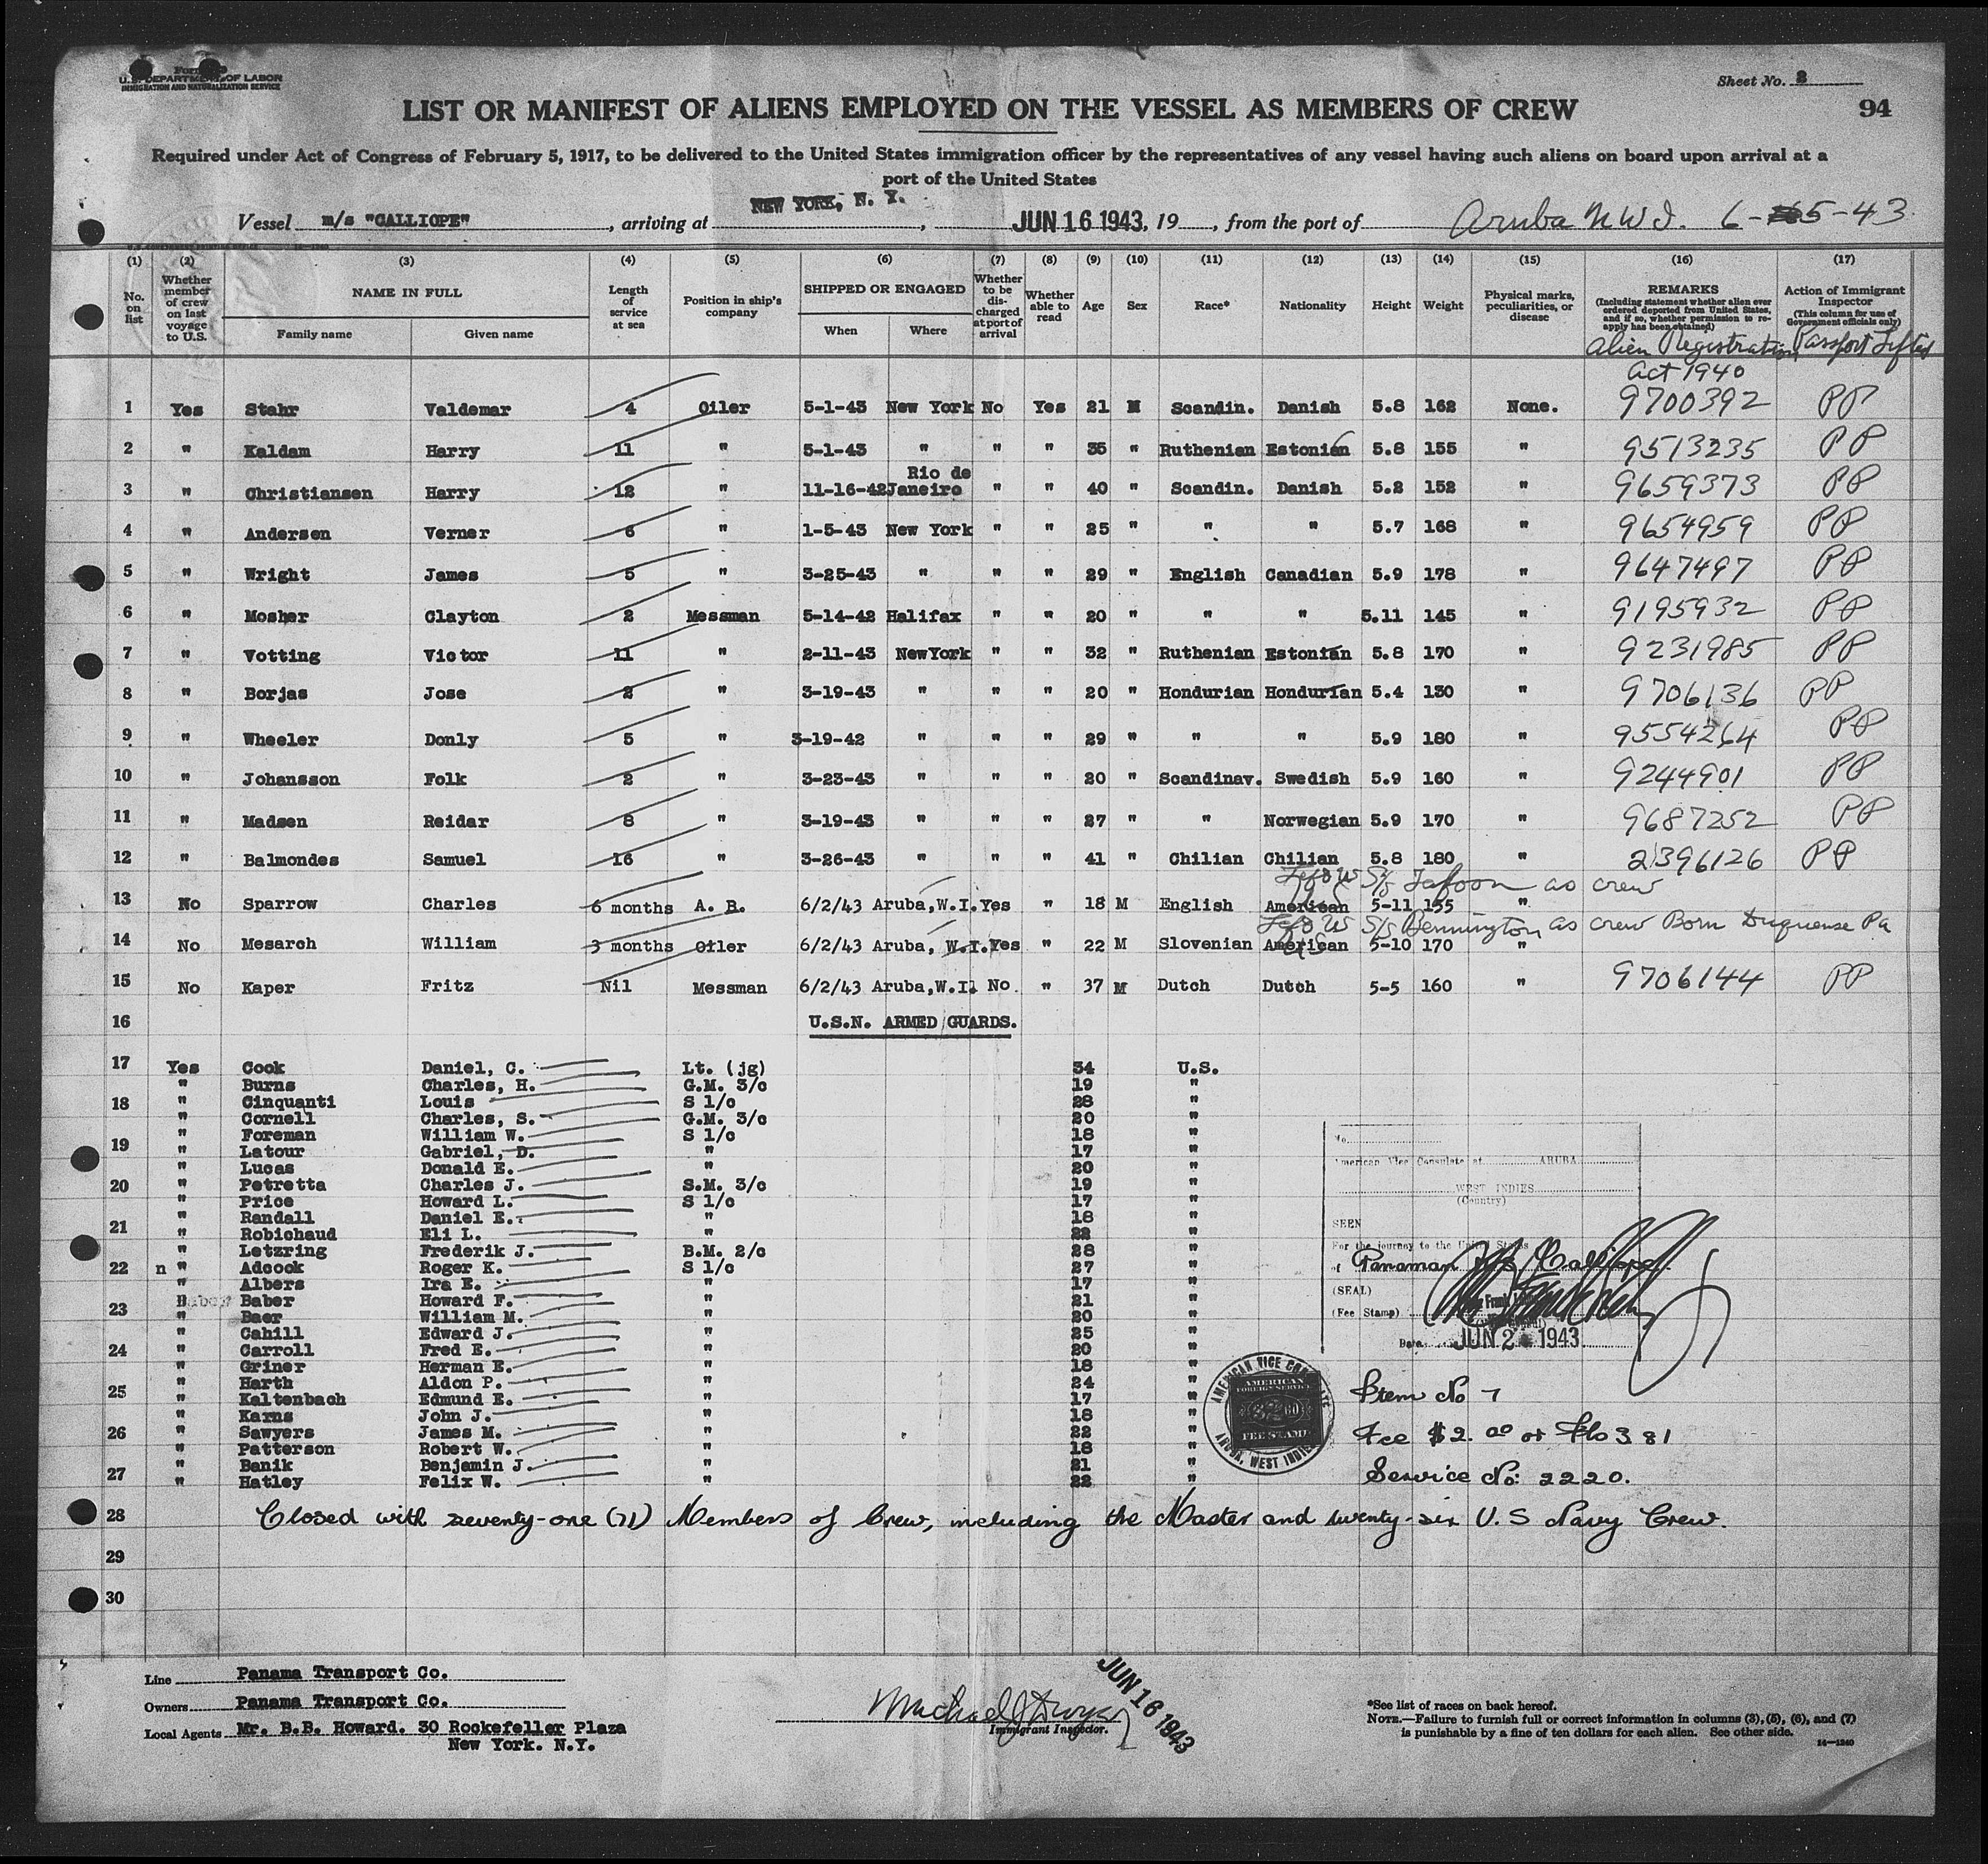 U.S. DEPARTMENT OF LABOR
IMMIGRATION AND NATURALIZATION SERVICE
Sheet No. 2
LIST OR MANIFEST OF ALIENS EMPLOYED ON THE VESSEL AS MEMBERS OF CREW
94
Required under Act of Congress of February 5, 1917, to be delivered to the United States immigration officer by the representatives of any vessel having such aliens on board upon arrival at a
port of the United States
Vessel m/s "CALLIOPE", arriving at NEW YORK, N. Y., JUN 16 1943, 19, from the port of Aruba N.W.I. 6-5-43
(1) (2) (3) (4) (5) (6) (7) (8) (9) (10) (11) (12) (13) (14) (15) (16) (17)
No. on list
Whether member of crew on last voyage to U.S.
NAME IN FULL
Family name Given name
Length of service at sea
Position in ship's company
SHIPPED OR ENGAGED
When Where
Whether to be discharged at port of arrival
Whether able to read
Age
Sex
Race*
Nationality
Height
Weight
Physical marks, peculiarities, or disease
REMARKS
(Including statement whether alien ever ordered deported from United States, and if so, whether permission to re-apply has been obtained)
Action of Immigrant Inspector
(This column for use of Government officials only)
Alien Registration Act 1940
Passport Lifted
1 Yes Stahr Valdemar 4 Oiler 5-1-43 New York No Yes 21 M Scandin. Danish 5.8 162 None. 9700392 PP
2 " Kaldam Harry 11 " 5-1-43 " " " 35 " Ruthenian Estonian 5.8 155 " 9513235 PP
3 " Christiansen Harry 12 " 11-16-42 Rio de Janeiro " " 40 " Scandin. Danish 5.2 152 " 9659373 PP
4 " Andersen Verner 6 " 1-5-43 New York " " 25 " " " 5.7 168 " 9654959 PP
5 " Wright James 5 " 3-25-43 " " " 29 " English Canadian 5.9 178 " 9647497 PP
6 " Mosher Clayton 2 Messman 5-14-42 Halifax " " 20 " " " 5.11 145 " 9195932 PP
7 " Votting Victor 11 " 2-11-43 NewYork " " 32 " Ruthenian Estonian 5.8 170 " 9231985 PP
8 " Borjas Jose 2 " 3-19-43 " " " 20 " Hondurian Hondurian 5.4 130 " 9706136 PP
9 " Wheeler Donly 5 " 3-19-42 " " " 29 " " " 5.9 180 " 9554264 PP
10 " Johansson Folk 2 " 3-23-43 " " " 20 " Scandinav. Swedish 5.9 160 " 9244901 PP
11 " Madsen Reidar 8 " 3-19-43 " " " 27 " " Norwegian 5.9 170 " 9687252 PP
12 " Balmondes Samuel 16 " 3-26-43 " " " 41 " Chilian Chilian 5.8 180 " 2396126 PP
Left US S/S as crew
13 No Sparrow Charles 6 months A. B. 6/2/43 Aruba,W.I. Yes " 18 M English American 5-11 155 "
Left US S/S Bennington as crew Born Duquense Pa
14 No Mesarch William 3 months Oiler 6/2/43 Aruba, W.I. Yes " 22 M Slovenian American 5-10 170 "
15 No Kaper Fritz Nil Messman 6/2/43 Aruba,W.I. No. " 37 M Dutch Dutch 5-5 160 " 9706144 PP
16 U.S.N. ARMED GUARDS.
17 Yes Cook Daniel, C. Lt. (jg) 34 U.S.
" Burns Charles, H. G.M. 3/c 19 "
18 " Cinquanti Louis S 1/c 28 "
" Cornell Charles, S. G.M. 3/c 20 "
" Foreman William W. S 1/c 18 "
19 " Latour Gabriel, D. " 17 "
" Lucas Donald E. " 20 "
20 " Petretta Charles J. S.M. 3/c 19 "
" Price Howard L. S 1/c 17 "
" Randall Daniel E. " 18 "
21 " Robichaud Eli L. " 22 "
" Letzring Frederik J. B.M. 2/c 28 "
22 n " Adcock Roger K. S 1/c 27 "
" Albers Ira E. " 17 "
23 " Baber Howard F. " 21 "
" Baer William M. " 20 "
" Cahill Edward J. " 25 "
24 " Carroll Fred E. " 20 "
" Griner Herman E. " 18 "
" Harth Aldon P. " 24 "
25 " Kaltenbach Edmund E. " 17 "
" Karns John J. " 18 "
26 " Sawyers James M. " 22 "
" Patterson Robert W. " 18 "
" Banik Benjamin J. " 21 "
27 " Hatley Felix W. " 22 "
No.
American Vice Consulate at ARUBA
WEST INDIES
(Country)
SEEN
For the journey to the United States
of Panaman M/S Calliope
(SEAL)
(Fee Stamp)
Date JUN 2 1943
AMERICAN VICE CONSULATE
ARUBA, WEST INDIES
AMERICAN
FOREIGN SERVICE
FEE STAMP
Item No 7
Fee $2.00 or Fls 3.81
Service No: 2220.
28 Closed with seventy-one (71) Members of Crew, including the Master and twenty-six U.S Navy Crew.
29
30
Line Panama Transport Co.
Owners Panama Transport Co.
Local Agents Mr. B.B. Howard. 30 Rockefeller Plaza
New York. N.Y.
Michael J Dwyer
Immigrant Inspector.
JUN 16 1943
*See list of races on back hereof.
NOTE.—Failure to furnish full or correct information in columns (3), (5), (6), and (7)
is punishable by a fine of ten dollars for each alien. See other side.
14—1240